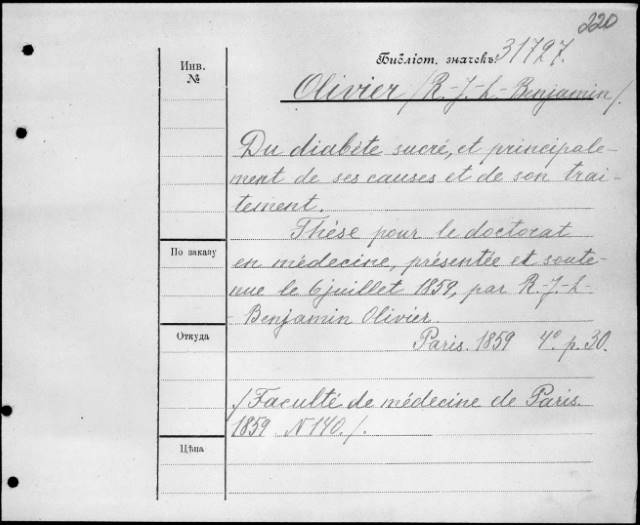 220
Библіот. значекъ 31727.
Инв.
№
Olivier /R.-J.-L.-Benjamin/.
Du diabète sucré, et principale-
ment de ses causes et de son trai-
tement.
Thèse pour le doctorat
По заказу
en médecine, présentée et soute-
nue le 6 juillet 1859, par R.-J.-L.-
- Benjamin Olivier.
Откуда
Paris. 1859 4°. p. 30.
/Faculté de médecine de Paris.
1859 N 140./.
Цѣна